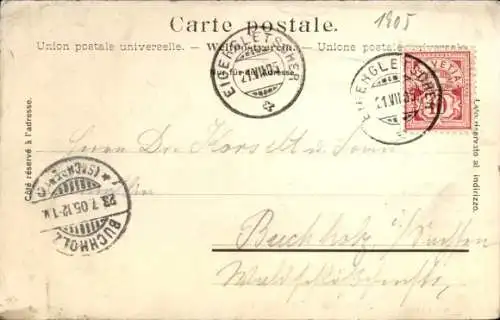 Carte postale.
1905
Union postale universelle. — Weltpostverein. — Unione postale universale.
Nur für die Adresse.
EIGERGLETSCHER
21.VII.05
EIGERGLETSCHER
21.VII.05
HELVETIA
10
Côté réservé à l'adresse.
Lato riservato al indirizzo.
Herrn Dr. Korselt u. Frau
BUCHHOLZ
23.7.05.12-1N.
* (SACHSEN) *
Buchholz i/Sachsen